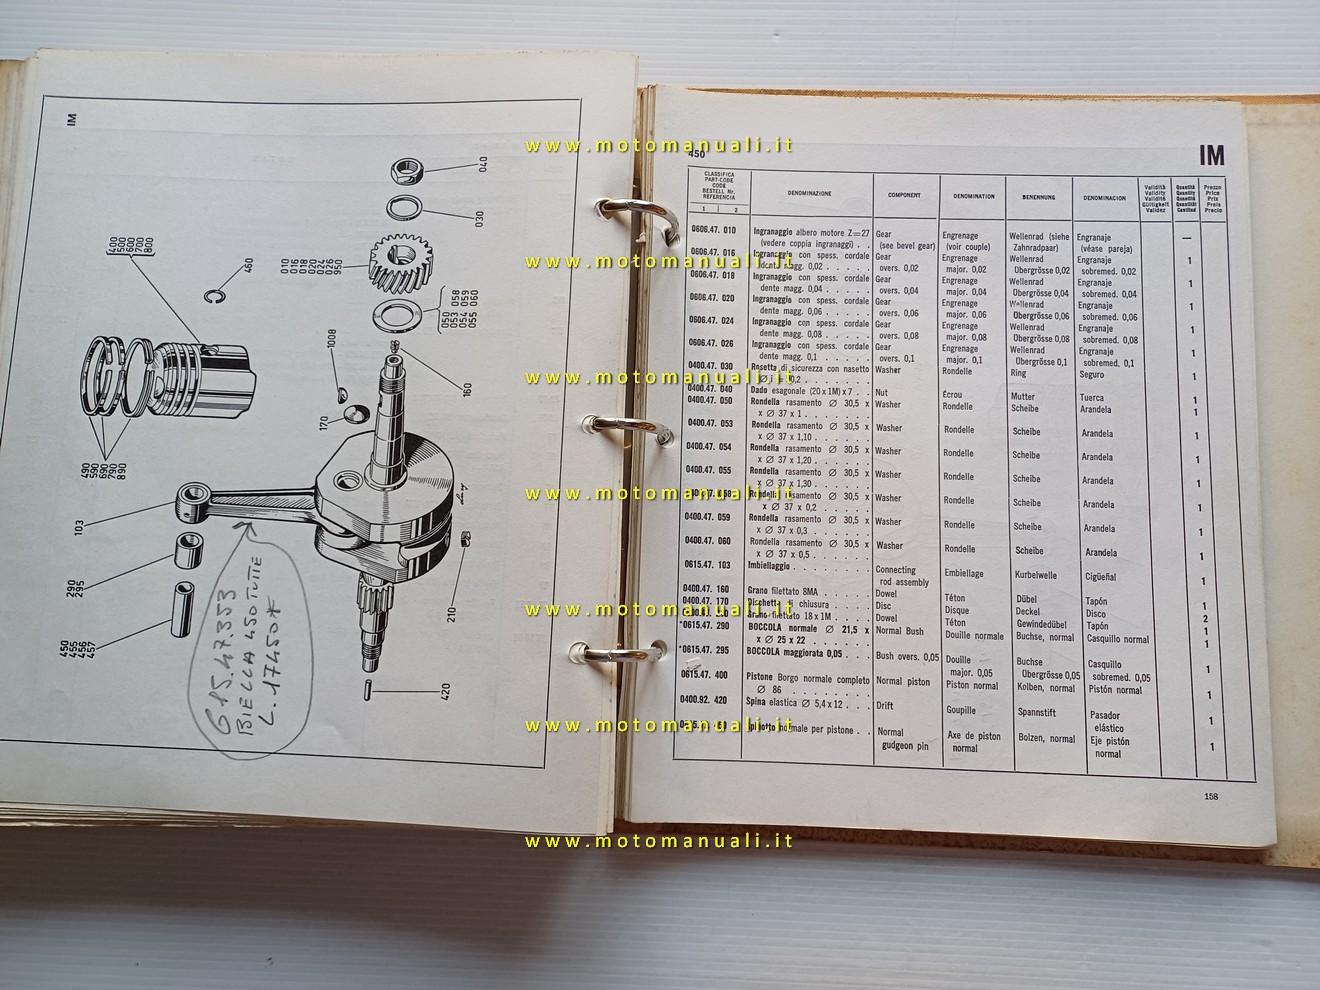 IM
040
030
010
016
018
020
024
026
350
050 058
053 059
054 060
055
160
1008
170
460
400
500
600
700
800
490
590
690
790
890
103
290
295
450
455
456
457
210
420
615.47.353
BIELLA 450 TUTTE
L. 17450
450
IM
CLASSIFICA
PART-CODE
CODE
BESTELL Nr.
REFERENCIA
1 2
DENOMINAZIONE
COMPONENT
DENOMINATION
BENENNUNG
DENOMINACION
Validità
Validity
Validité
Gültigkeit
Validez
Quantità
Quantity
Quantité
Quantität
Cantidad
Prezzo
Price
Prix
Preis
Precio
0606.47. 010 Ingranaggio albero motore Z=27 Gear Engrenage Wellenrad (siehe Engranaje
(vedere coppia ingranaggi) . . (see bevel gear) (voir couple) Zahnradpaar) (véase pareja) —
0606.47. 016 Ingranaggio con spess. cordale Gear Engrenage Wellenrad Engranaje
dente magg. 0,02 overs. 0,02 major. 0,02 Obergrösse 0,02 sobremed. 0,02 1
0606.47. 018 Ingranaggio con spess. cordale Gear Engrenage Wellenrad Engranaje
dente magg. 0,04 overs. 0,04 major. 0,04 Obergrösse 0,04 sobremed. 0,04 1
0606.47. 020 Ingranaggio con spess. cordale Gear Engrenage Wellenrad Engranaje
dente magg. 0,06 overs. 0,06 major. 0,06 Obergrösse 0,06 sobremed. 0,06 1
0606.47. 024 Ingranaggio con spess. cordale Gear Engrenage Wellenrad Engranaje
dente magg. 0,08 overs. 0,08 major. 0,08 Obergrösse 0,08 sobremed. 0,08 1
0606.47. 026 Ingranaggio con spess. cordale Gear Engrenage Wellenrad Engranaje
dente magg. 0,1 overs. 0,1 major. 0,1 Obergrösse 0,1 sobremed. 0,1 1
0400.47. 030 Rosetta di sicurezza con nasetto Washer Rondelle Ring Seguro 1
0400.47. 040 Dado esagonale (20x1M) x 7 . . Nut Écrou Mutter Tuerca 1
0400.47. 050 Rondella rasamento Ø 30,5 x Washer Rondelle Scheibe Arandela 1
x Ø 37 x 1
0400.47. 053 Rondella rasamento Ø 30,5 x Washer Rondelle Scheibe Arandela 1
x Ø 37 x 1,10
0400.47. 054 Rondella rasamento Ø 30,5 x Washer Rondelle Scheibe Arandela 1
x Ø 37 x 1,20
0400.47. 055 Rondella rasamento Ø 30,5 x Washer Rondelle Scheibe Arandela 1
x Ø 37 x 1,30
058 Rondella rasamento Ø 30,5 x Washer Rondelle Scheibe Arandela 1
x Ø 37 x 0,2
0400.47. 059 Rondella rasamento Ø 30,5 x Washer Rondelle Scheibe Arandela 1
x Ø 37 x 0,3
0400.47. 060 Rondella rasamento Ø 30,5 x Washer Rondelle Scheibe Arandela 1
x Ø 37 x 0,5
0615.47. 103 Imbiellaggio Connecting Embiellage Kurbelwelle Cigüeñal 1
rod assembly
0400.47. 160 Grano filettato 8MA Dowel Téton Dübel Tapón 1
0400.47. 170 Dischetto di chiusura Disc Disque Deckel Disco 2
Grano filettato 18 x 1M . . Dowel Téton Gewindedübel Tapón 1
*0615.47. 290 BOCCOLA normale Ø 21,5 x Normal Bush Douille normale Buchse, normal Casquillo normal 1
x Ø 25 x 22
*0615.47. 295 BOCCOLA maggiorata 0,05 . . . Bush overs. 0,05 Douille Buchse Casquillo 1
major. 0,05 Obergrösse 0,05 sobremed. 0,05
0615.47. 400 Pistone Borgo normale completo Normal piston Piston normal Kolben, normal Pistón normal 1
Ø 86
0400.92. 420 Spina elastica Ø 5,4 x 12 . . . Drift Goupille Spannstift Pasador 1
elástico
Spinotto normale per pistone . . Normal Axe de piston Bolzen, normal Eje pistón 1
gudgeon pin normal normal
158
www.motomanuali.it
www.motomanuali.it
www.motomanuali.it
www.motomanuali.it
www.motomanuali.it
www.motomanuali.it
www.motomanuali.it